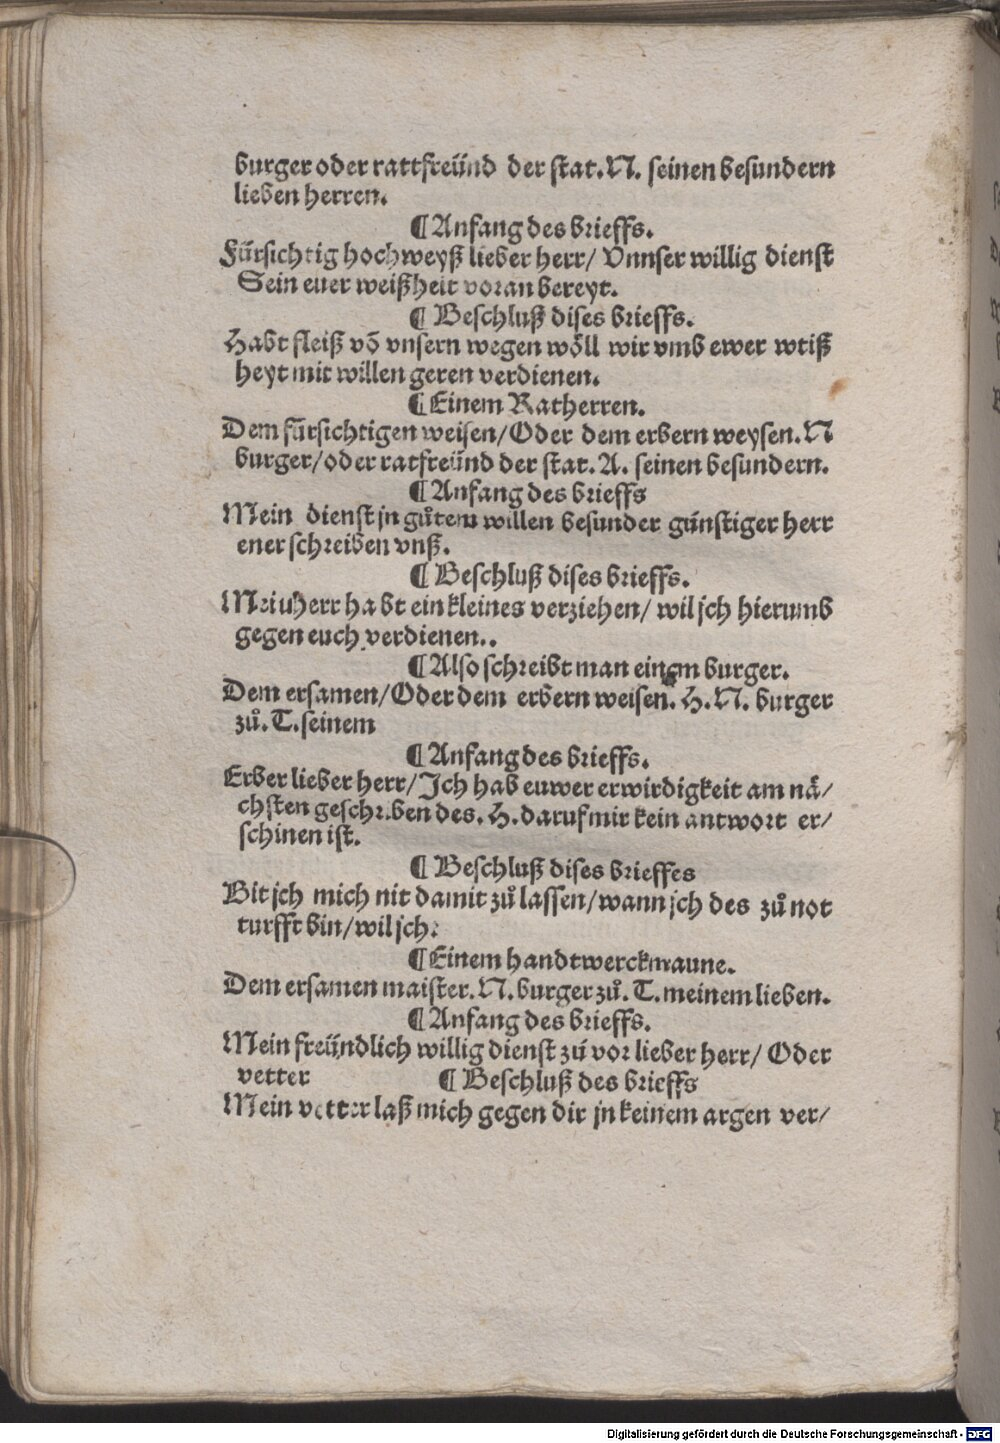 burger oder rattfreünd der stat. N. seinen besundern
lieben herren.
¶ Anfang des brieffs.
Fürsichtig hochweyß lieber herr/ Vnnser willig dienst
Sein euer weißheit voran bereyt.
¶ Beschluß dises brieffs.
Habt fleiß võ vnsern wegen wöll wir vmb ewer wtiß
heyt mit willen geren verdienen.
¶ Einem Ratherren.
Dem fürsichtigen weisen/ Oder dem erbern weysen. N
burger/ oder ratfreünd der stat. A. seinen besundern.
¶ Anfang des brieffs
Mein dienst jn gůtem willen besunder günstiger herr
ener schreiben vnß.
¶ Beschluß dises brieffs.
Mein herr habt ein kleines verziehen/ wil jch hierumb
gegen euch verdienen..
¶ Also schreibt man einem burger.
Dem ersamen/ Oder dem erbern weisen. H. N. burger
zů. T. seinem
¶ Anfang des brieffs.
Erber lieber herr/ Ich hab euwer erwirdigkeit am nä/
chsten geschriben des. H. daruf mir kein antwort er/
schinen ist.
¶ Beschluß dises brieffes
Bit jch mich nit damit zů lassen/ wann jch des zů not
turfft bin/ wil jch:
¶ Einem handtwerckmaune.
Dem ersamen maister. N. burger zů. T. meinem lieben.
¶ Anfang des brieffs.
Mein freündlich willig dienst zů vor lieber herr/ Oder
vetter ¶ Beschluß des brieffs
Mein vetter laß mich gegen dir jn keinem argen ver/
Digitalisierung gefördert durch die Deutsche Forschungsgemeinschaft - DFG